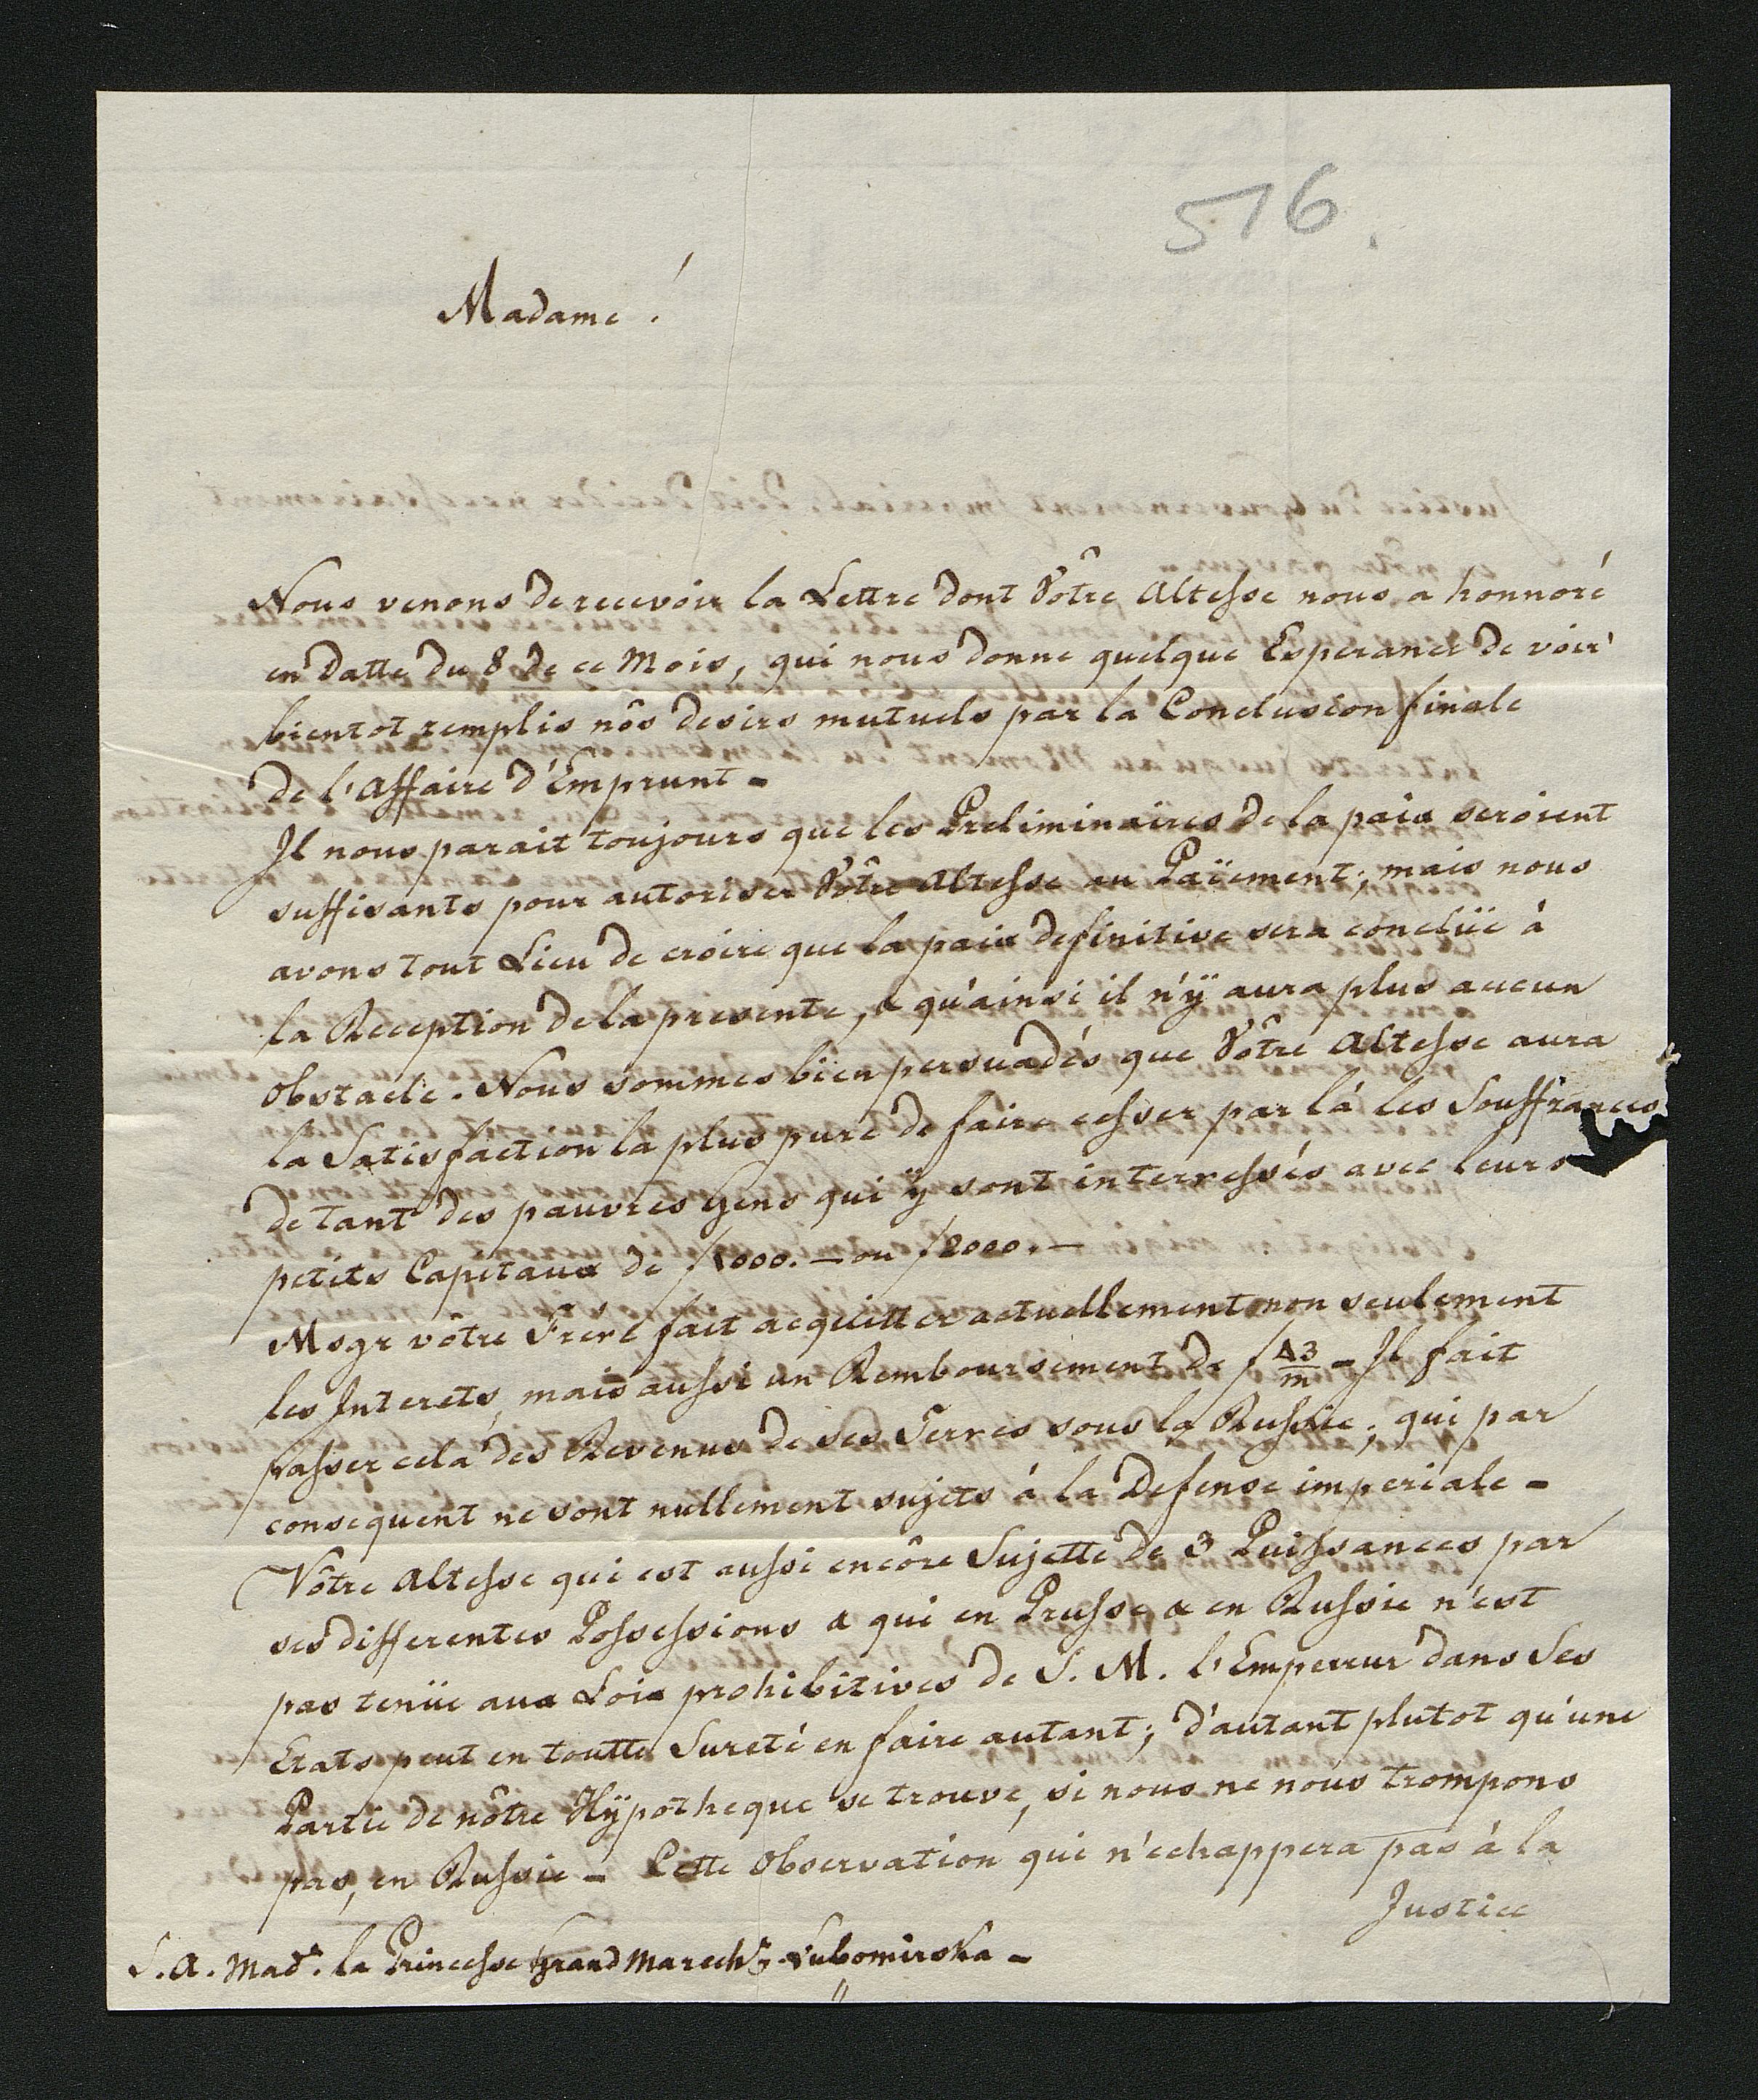 516.
Madame!
Nous venons de recevoir la Lettre dont Vôtre Altesse nous a honnoré
en Datte du 8 de ce Mois, qui nous donne quelque Esperance de voir
bientot remplis nôs desirs mutuels par la Conclusion finale
de l'Affaire d'Emprunt -
Il nous parait toujours que les Preliminaires de la paix seroient
suffisants pour autoriser Vôtre Altesse au Païement; mais nous
avons tout Lieu de croire que la paix definitive sera conclüe à
la Reception de la presente, & qu'ainsi il n'ÿ aura plus aucun
Obstacle. Nous sommes bien persuadés que Vôtre Altesse aura
la Satisfaction la plus pure de faire cesser par là les Souffrances
de tant des pauvres gens qui ÿ sont interressés avec leurs
petits Capitaux de f1000.— ou f2000.—
Msgr vôtre Frere fait acquitter actuellement non seulement
les Interets, mais aussi un Remboursement de f 43/m - Il fait
passer cela des Revenus de ses Terres sous la Russie; qui par
consequent ne sont nullement sujets à la Defense imperiale -
Vôtre Altesse qui est aussi encôre Sujette de 3 Puissances par
ses differentes Possessions & qui en Prusse & en Russie n'est
pas tenüe aux Loix prohibitives de S. M. l'Empereur dans Ses
Etats peut en toutte Sureté en faire autant; d'autant plutot qu'une
Partie de nôtre Hÿpotheque se trouve, si nous ne nous trompons
pas, en Russie - Cette Observation qui n'echappera pas à la
Justice
S. A. Made. la Princesse Grand Marechle. Lubomirska -